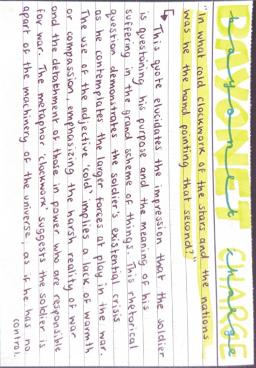 BAYONET CHARGE
bayonet charge
"In what cold clockwork of the stars and the nations
was he the hand pointing that second?"
↳ This quote elucidates the impression that the soldier
is questioning his purpose and the meaning of his
suffering in the grand scheme of things. This rhetorical
question demonstrates the soldier's existential crisis
as he contemplates the larger forces at play in the war.
The use of the adjective 'cold' implies a lack of warmth
or compassion, emphasizing the harsh reality of war
and the detachment of those in power who are responsible
for war. The metaphor 'clockwork' suggests the soldier is
apart of the machinery of the universe, as if he has no
control.